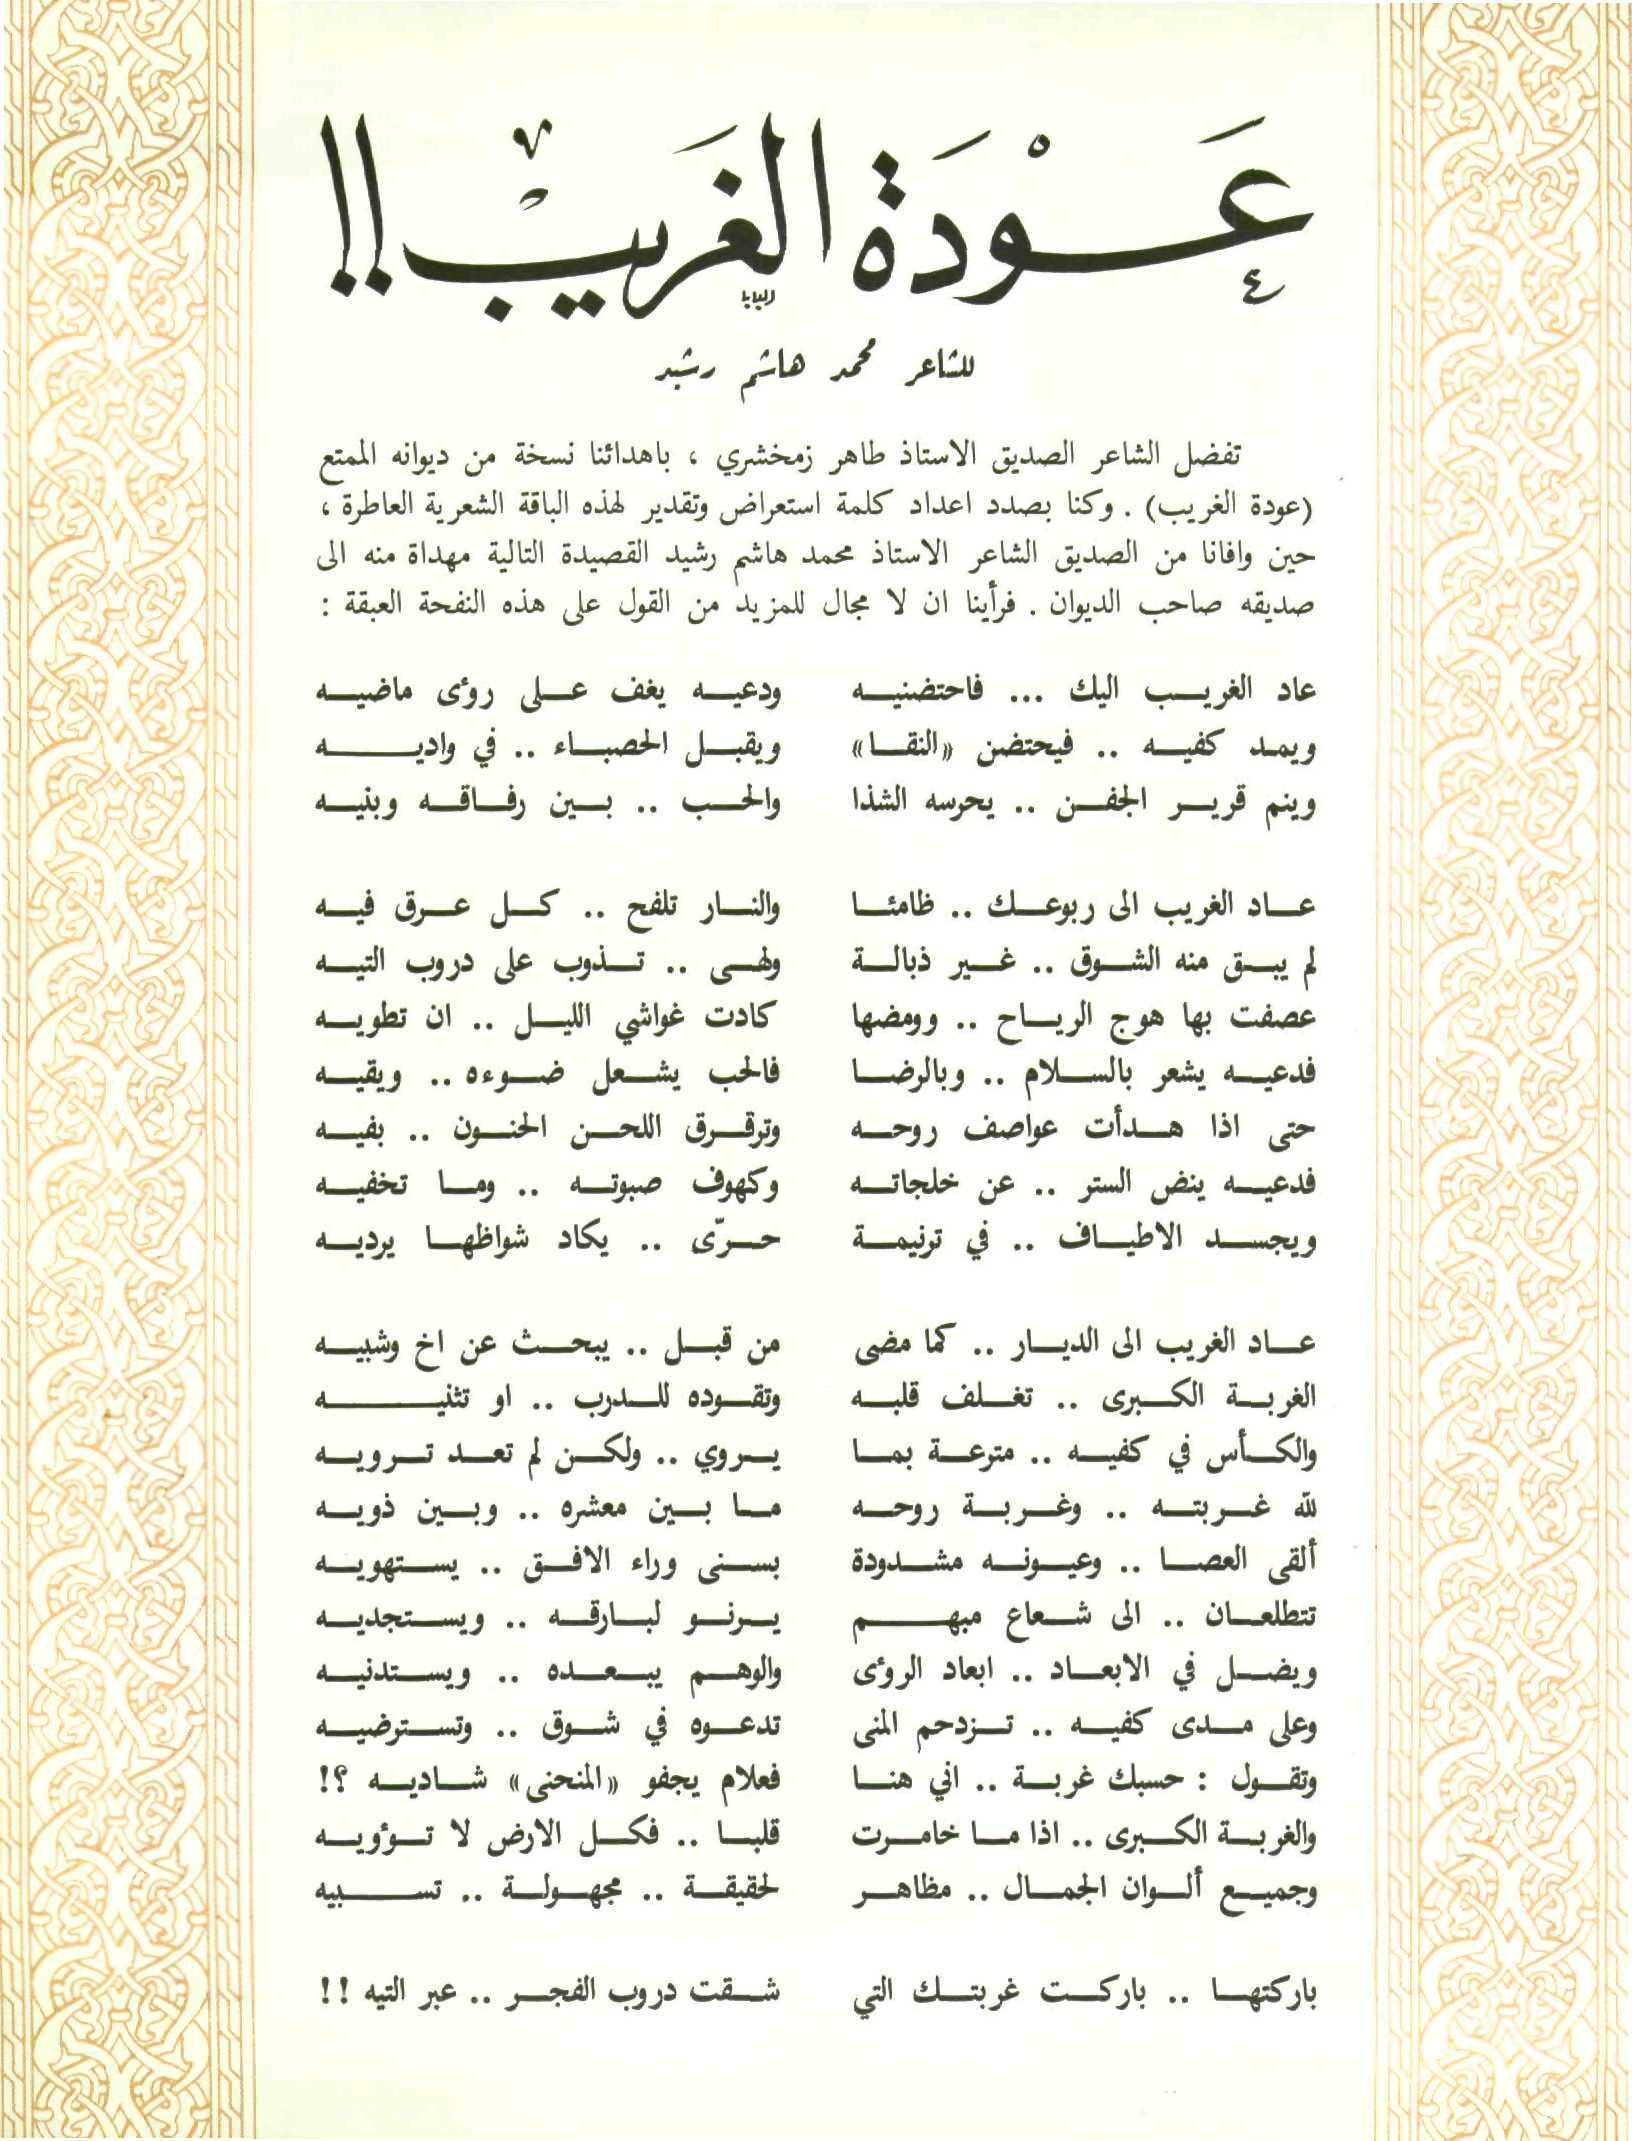 عَوْدَة الغَريب !!
البابا
للشاعر محمد هاشم رشيد
تفضل الشاعر الصديق الاستاذ طاهر زمخشري ، باهدائنا نسخة من ديوانه الممتع
(عودة الغريب) . وكنا بصدد اعداد كلمة استعراض وتقدير لهذه الباقة الشعرية العاطرة ،
حين وافانا من الصديق الشاعر الاستاذ محمد هاشم رشيد القصيدة التالية مهداة منه الى
صديقه صاحب الديوان . فرأينا ان لا مجال للمزيد من القول على هذه النفحة العبقة :
عاد الغريب اليك ... فاحتضنيه ودعيه يغف على رؤى ماضيه
ويمد كفيه .. فيحتضن «النقا» ويقبل الحصباء .. في واديه
وينم قرير الجفن .. يحرسه الشذا والحب .. بين رفاقه وبنيه
عاد الغريب الى ربوعك .. ظامئا والنار تلفح .. كل عرق فيه
لم يبق منه الشوق .. غير ذبالة ولهى .. تذوب على دروب التيه
عصفت بها هوج الرياح .. وومضها كادت غواشي الليل .. ان تطويه
فدعيه يشعر بالسلام .. وبالرضا فالحب يشعل ضوءه .. ويقيه
حتى اذا هدأت عواصف روحه وترقرق اللحن الحنون .. بفيه
فدعيه ينض الستر .. عن خلجاته وكهوف صبوته .. وما تخفيه
ويجسد الاطياف .. في ترنيمة حرّى .. يكاد شواظها يرديه
عاد الغريب الى الديار .. كما مضى من قبل .. يبحث عن اخ وشبيه
الغربة الكبرى .. تغلف قلبه وتقوده للدرب .. او تثنيه
والكأس في كفيه .. مترعة بما يروي .. ولكن لم تعد ترويه
لله غربته .. وغربة روحه ما بين معشره .. وبين ذويه
ألقى العصا .. وعيونه مشدودة بسنى وراء الافق .. يستهويه
تتطلعان .. الى شعاع مبهم يرنو لبارقه .. ويستجديه
ويضل في الابعاد .. ابعاد الرؤى والوهم يبعده .. ويستدنيه
وعلى مدى كفيه .. تزدحم المنى تدعوه في شوق .. وتسترضيه
وتقول : حسبك غربة .. اني هنا فعلام يجفو «المنحنى» شاديه ؟!
والغربة الكبرى .. اذا ما خامرت قلبا .. فكل الارض لا تؤويه
وجميع ألوان الجمال .. مظاهر لحقيقة .. مجهولة .. تسبيه
باركتها .. باركت غربتك التي شقت دروب الفجر .. عبر التيه !!